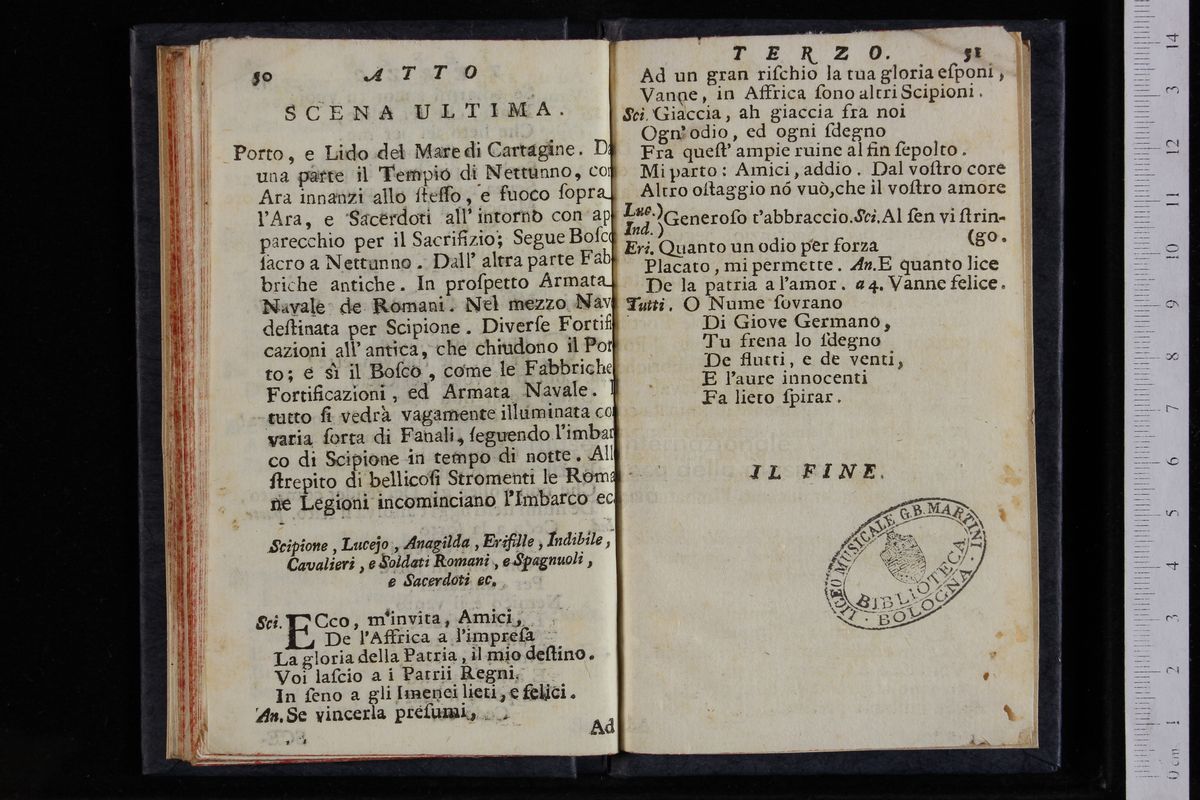 50 ATTO
SCENA ULTIMA.
Porto, e Lido del Mare di Cartagine. Da
una parte il Tempio di Nettunno, con
Ara innanzi allo ſteſſo, e fuoco ſopra
l'Ara, e Sacerdoti all' intorno con ap
parecchio per il Sacrifizio; Segue Boſco
ſacro a Nettunno. Dall' altra parte Fab
briche antiche. In proſpetto Armata
Navale de Romani. Nel mezzo Nav
deſtinata per Scipione. Diverſe Fortifi
cazioni all' antica, che chiudono il Por
to; e sì il Boſco, come le Fabbriche
Fortificazioni, ed Armata Navale. I
tutto ſi vedrà vagamente illuminata co
varia ſorta di Fanali, ſeguendo l'imbar
co di Scipione in tempo di notte. All
ſtrepito di bellicoſi Stromenti le Roma
ne Legioni incominciano l'Imbarco ec.
Scipione, Lucejo, Anagilda, Erifille, Indibile,
Cavalieri, e Soldati Romani, e Spagnuoli,
e Sacerdoti ec.
Sci. ECco, m'invita, Amici,
De l'Affrica a l'impreſa
La gloria della Patria, il mio deſtino.
Voi laſcio a i Patrii Regni,
In ſeno a gli Imenei lieti, e felici.
An. Se vincerla preſumi,
Ad
TERZO. 51
Ad un gran riſchio la tua gloria eſponi,
Vanne, in Affrica ſono altri Scipioni.
Sci. Giaccia, ah giaccia fra noi
Ogn' odio, ed ogni ſdegno
Fra queſt' ampie ruine al fin ſepolto.
Mi parto: Amici, addio. Dal voſtro core
Altro oſtaggio nó vuò, che il voſtro amore
Luc.)
Ind.) Generoſo t'abbraccio. Sci. Al ſen vi ſtrin-
(go.
Eri. Quanto un odio per forza
Placato, mi permette. An. E quanto lice
De la patria a l'amor. a 4. Vanne felice.
Tutti. O Nume ſovrano
Di Giove Germano,
Tu frena lo ſdegno
De flutti, e de venti,
E l'aure innocenti
Fa lieto ſpirar.
IL FINE.
LICEO MUSICALE G.B. MARTINI
BIBLIOTECA
BOLOGNA
0 cm 1 2 3 4 5 6 7 8 9 10 11 12 3 14